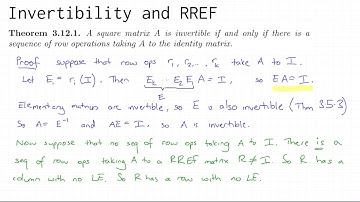 Invertibility and RREF
Theorem 3.12.1. A square matrix A is invertible if and only if there is a
sequence of row operations taking A to the identity matrix.
Proof suppose that row ops r₁, r₂, ..., rₖ take A to I.
Let Eᵢ = rᵢ(I). Then Eₖ ... E₂ E₁ A = I, so EA = I.
E
Elementary matrices are invertible, so E is also invertible (Thm 3.5.3)
So A = E⁻¹ and AE = I. so A is invertible.
Now suppose that no seq of row ops taking A to I. There is a
seq of row ops taking A to a RREF matrix R ≠ I. So R has a
column with no LE. So R has a row with no LE.